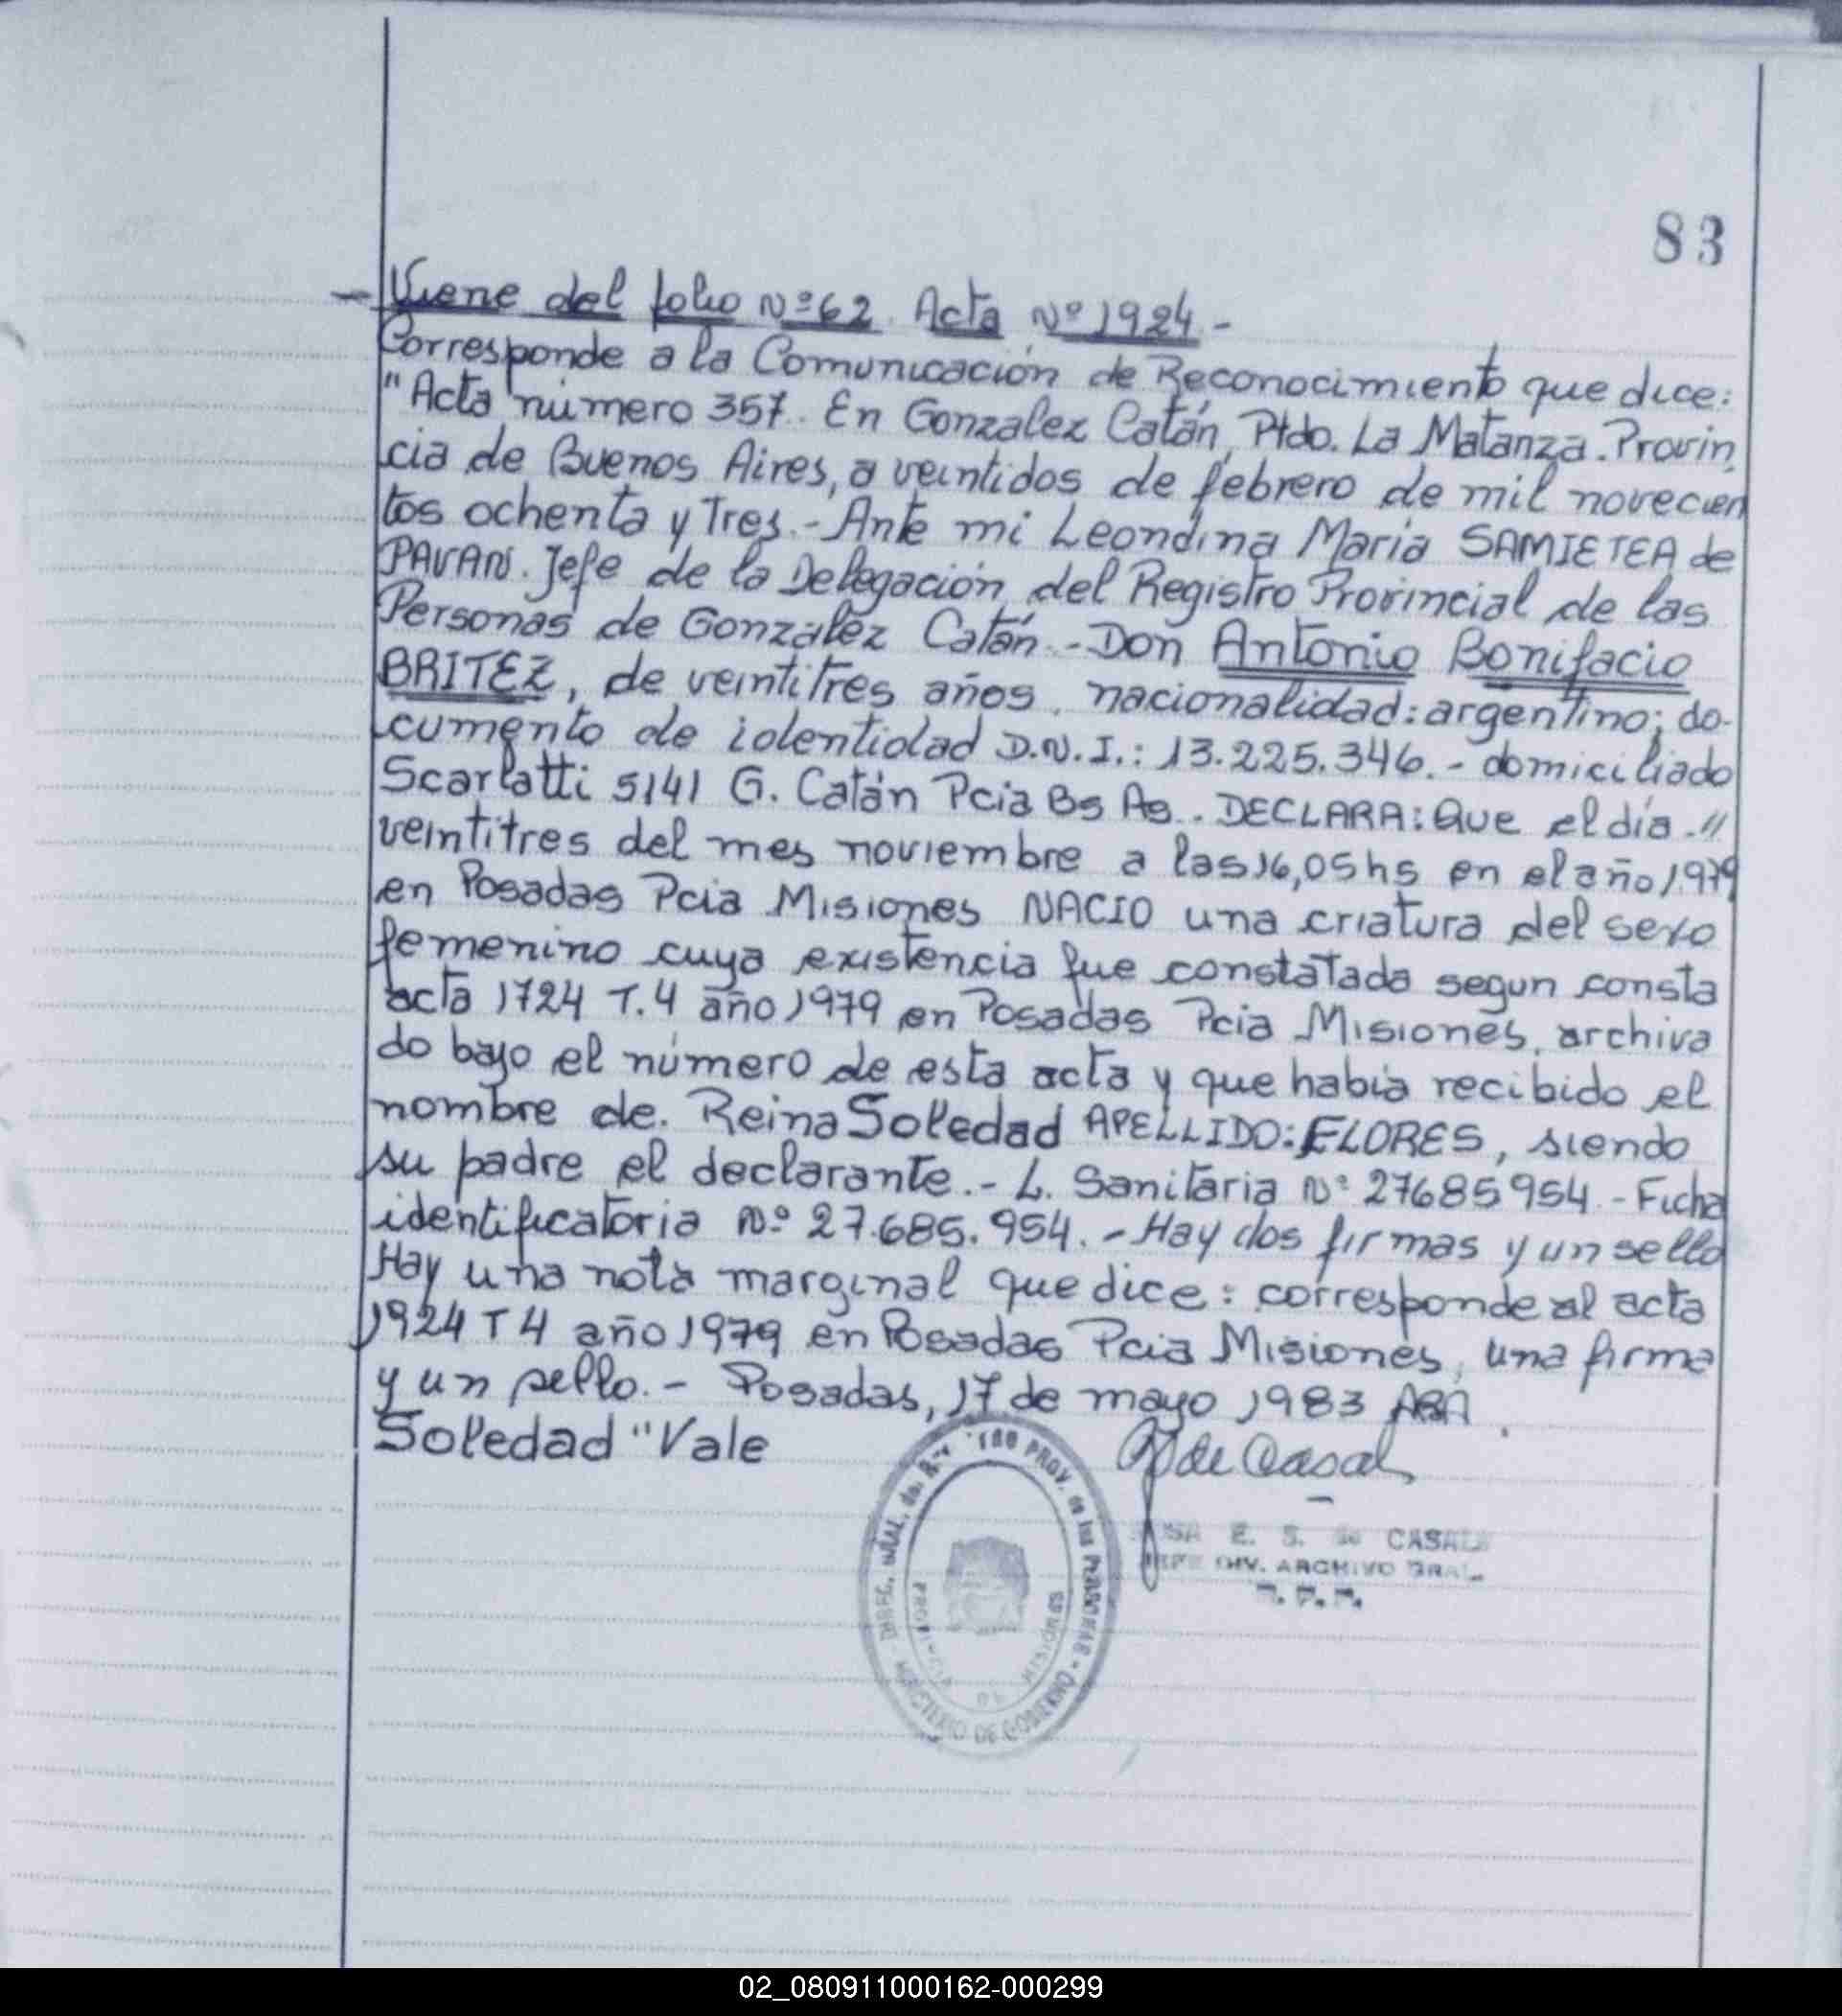 83
Viene del folio Nº 62. Acta Nº 1924.-
Corresponde a la Comunicación de Reconocimiento que dice:
"Acta número 357.. En Gonzalez Catán, Ptdo. La Matanza. Provin
cia de Buenos Aires, a veintidos de febrero de mil novecien
tos ochenta y Tres.- Ante mi Leondina Maria SAMIETEA de
PAVAN. Jefe de la Delegación del Registro Provincial de las
Personas de Gonzalez Catán.- Don Antonio Bonifacio
BRITEZ, de veintitres años, nacionalidad: argentino; do-
cumento de identidad D.N.I.: 13.225.346.- domiciliado
Scarlatti 5141 G. Catán Pcia Bs As.. DECLARA: Que el día.//
veintitres del mes noviembre a las 16,05 hs en el año 1979
en Posadas Pcia Misiones NACIO una criatura del sexo
femenino cuya existencia fue constatada segun consta
acta 1724 T. 4 año 1979 en Posadas Pcia Misiones, archiva
do bajo el número de esta acta y que había recibido el
nombre de. Reina Soledad APELLIDO: FLORES, siendo
su padre el declarante.- L. Sanitaria Nº 27685954.- Ficha
identificatoria Nº 27.685.954.- Hay dos firmas y un sello
Hay una nota marginal que dice: corresponde al acta
1924 T 4 año 1979 en Posadas Pcia Misiones, una firma
y un sello.- Posadas, 17 de mayo 1983 ABA
Soledad "Vale
de Casal
E. S. de CASALS
JEFE DIV. ARCHIVO GRAL.
R. P. P.
DIREC. GRAL. del REGTRO PROV. de las PERSONAS - MINISTERIO DE GOBIERNO
PROVINCIA DE MISIONES
02_080911000162-000299